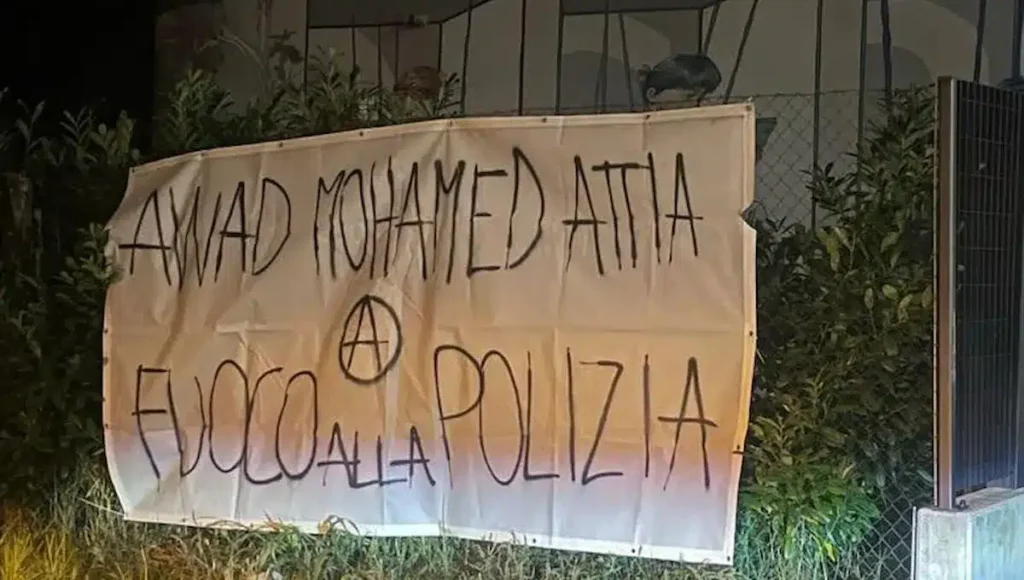 AWAD MOHAMED ATTIA
Ⓐ
FUOCO ALLA POLIZIA